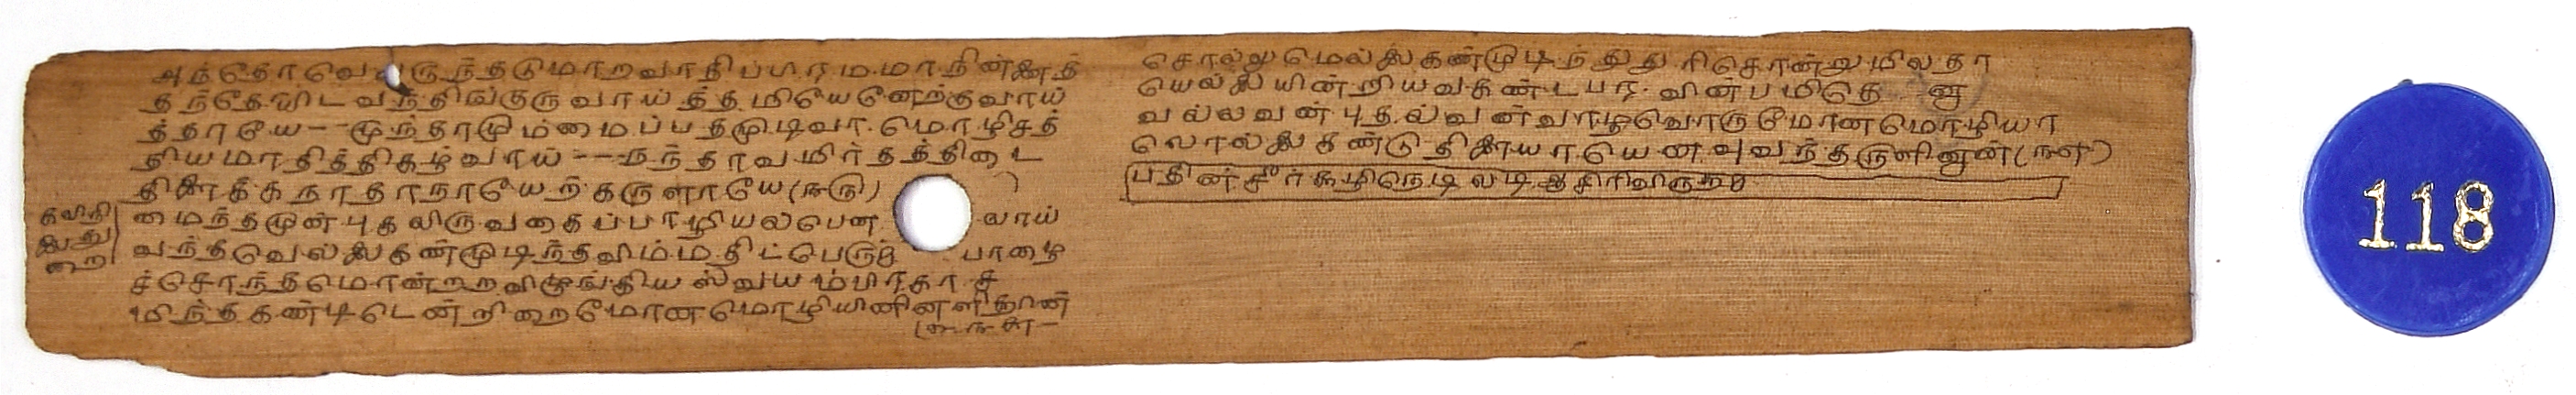 அந்தோவெ ருந்தடுமாறவாதிப்பரமமாநின்னைத்
தந்தேயிடவந்திங்குருவாய்த்தமியேனேற்குவாய்
த்தாயே--முந்தாமும்மைப்பதமுடிவா மொழிசத்
தியமாதித்திகழ்வாய்--நந்தாவமிர்தத்திடை
திளைக்கநாதாநாயேற்கருளாயே(௩௫)
மைந்தமுன்புதலிருவகைப்பாழியல்பென வாய்
வந்தவெல்லைகண்முடிந்தவிம்மதிட்பெரும் பாழை
ச்சொந்தமொன்றறவிழுங்கியஸ்வயம்பிரகாச
மிந்தகண்டிடென்றிறைமோனமொழியினினளித்தான்
சொல்லுமெல்லைகண்முடிந்துதுரிசொன்றுமிலதா
யெல்லையின்றியவகண்டபர வின்பமிதெ னு
வல்லவன்புதல்வன்வாழவொருமோனமொழியா
லொல்லைகண்டுதிளையாயெனவுவந்தருளினன்(௩௭)
பதின்சீர்கழிநெடிலடிஆசிரிவிருத்தம்
118